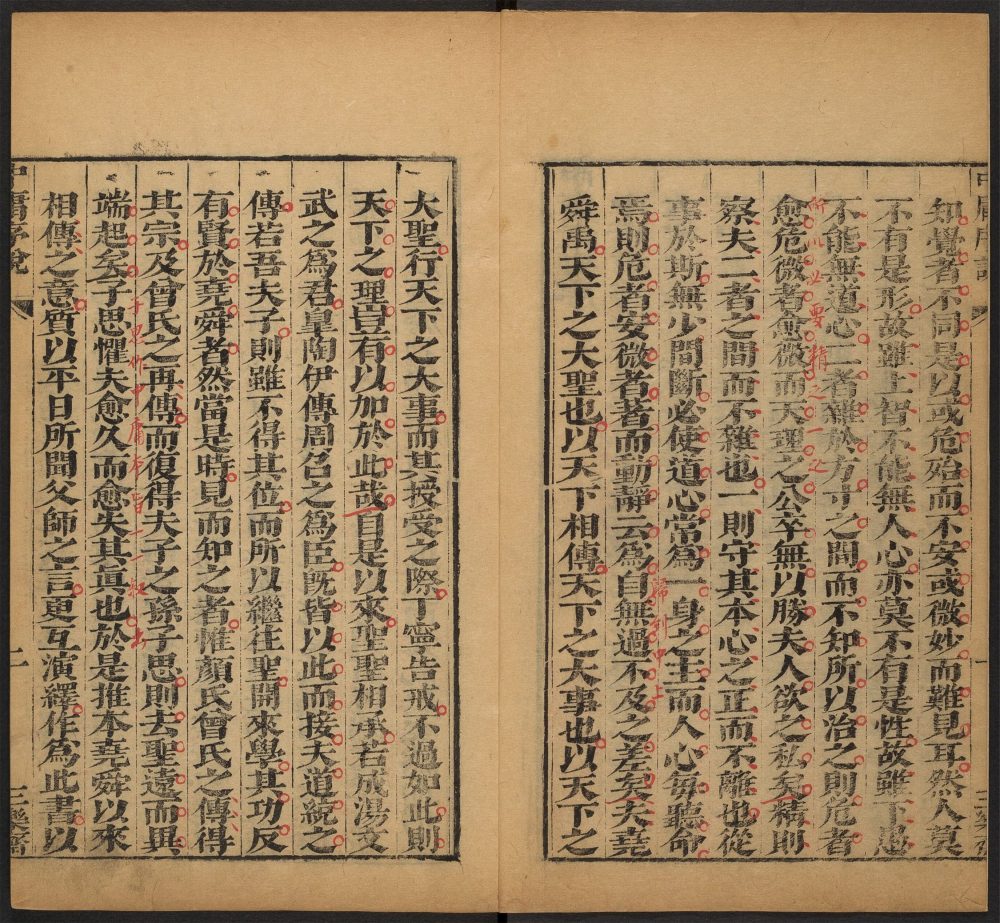 知覺者不同是以或危殆而不安或微妙而難見耳然人莫
不有是形故雖上智不能無人心亦莫不有是性故雖下愚
不能無道心二者雜於方寸之間而不知所以治之則危者
愈危微者愈微而天理之公卒無以勝夫人欲之私矣精則
察夫二者之間而不雜也一則守其本心之正而不離也從
事於斯無少間斷必使道心常為一身之主而人心每聽命
焉則危者安微者著而動靜云為自無過不及之差矣夫堯
舜禹天下之大聖也以天下相傳天下之大事也以天下之
大聖行天下之大事而其授受之際丁寧告戒不過如此則
天下之理豈有以加於此哉自是以來聖聖相承若成湯文
武之為君臯陶伊傅周召之為臣既皆以此而接夫道統之
傳若吾夫子則雖不得其位而所以繼往聖開來學其功反
有賢於堯舜者然當是時見而知之者惟顏氏曾氏之傳得
其宗及曾氏之再傳而復得夫子之孫子思則去聖遠而異
端起矣子思懼夫愈久而愈失其真也於是推本堯舜以來
相傳之意質以平日所聞父師之言更互演繹作為此書以
中庸序說